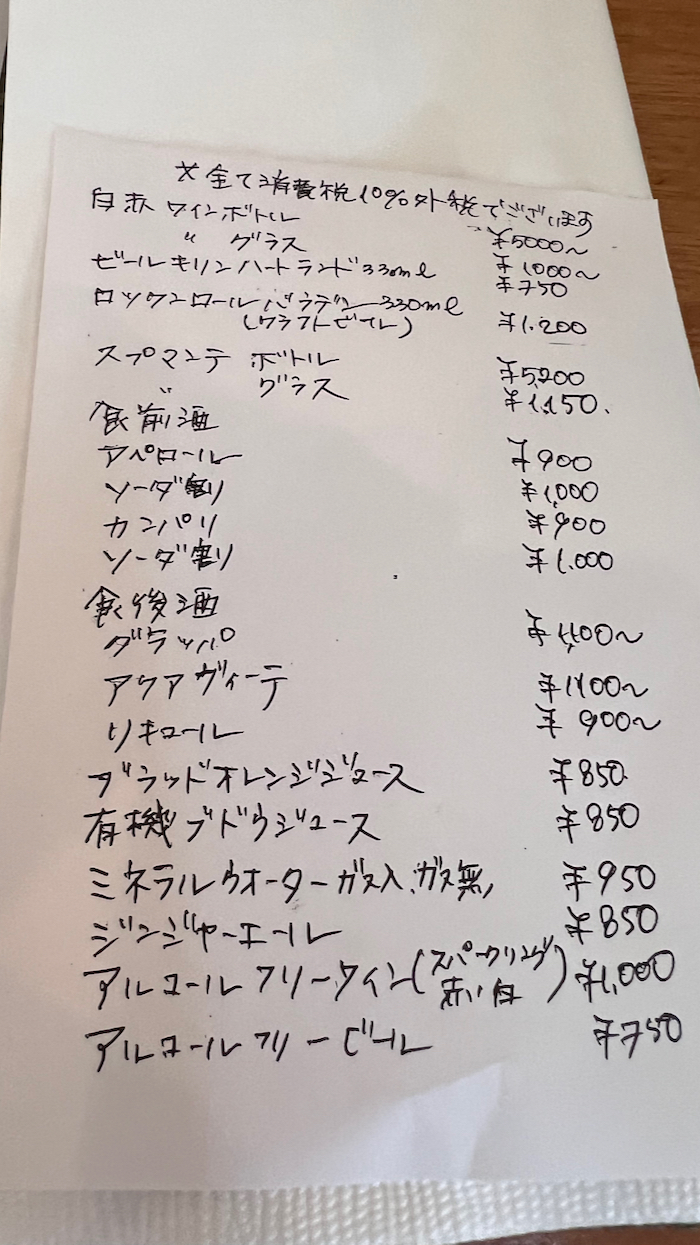 ※全て消費税10%外税でございます
白赤 ワインボトル ¥5000〜
〃 グラス ¥1000〜
ビールキリンハートランド330ml ¥750
ロックンロールバラデン330ml ¥1.200
(クラフトビール)
スプマンテ ボトル ¥5,200
〃 グラス ¥1,150.
食前酒
アペロール ¥900
ソーダ割り ¥1,000
カンパリ ¥900
ソーダ割り ¥1.000
食後酒
グラッパ ¥1,100〜
アクアヴィーテ ¥1100〜
リキュール ¥900〜
ブラッドオレンジジュース ¥850
有機ブドウジュース ¥850
ミネラルウオーターガス入、ガス無 ¥950
ジンジャーエール ¥850
アルコールフリーワイン(スパークリング 赤、白) ¥1,000
アルコールフリービール ¥750